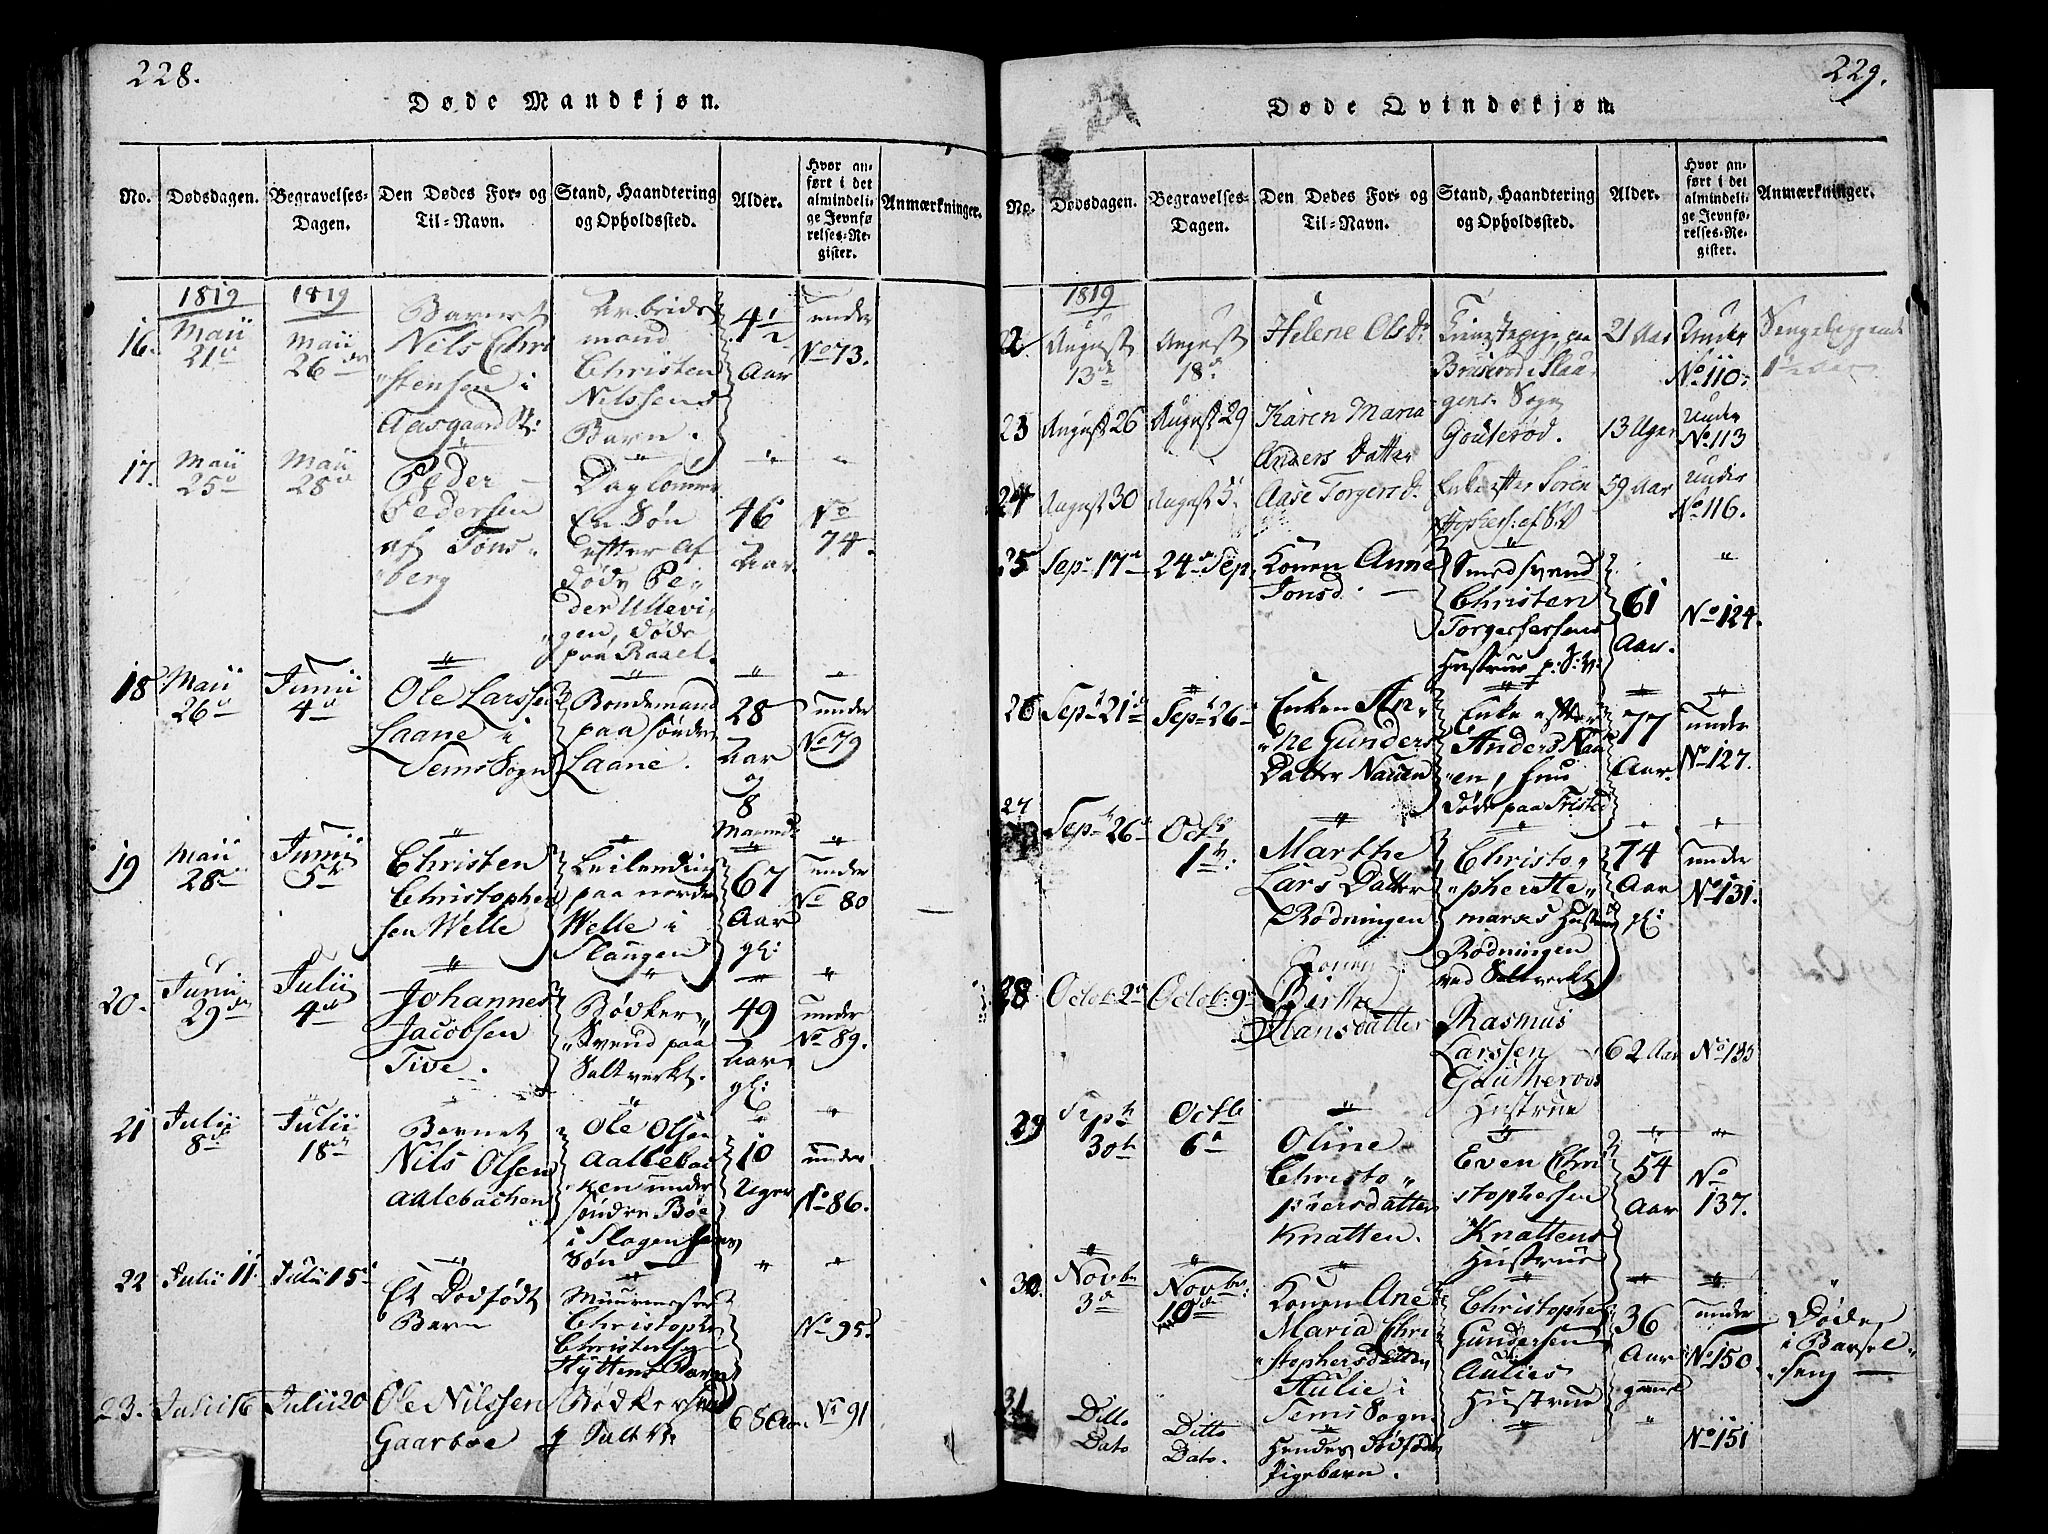 228.
Døde Mandkjøn.
No.
Dødsdagen.
Begravelses-
Dagen.
Den Dødes For- og
Til-Navn.
Stand, Haandtering
og Opholdssted.
Alder.
Hvor an-
ført i det
almindeli-
ge Jevnfø-
relses-Re-
gister.
Anmærkninger.
1819
1819
16.
Maii
21
Maii
26
Barnet
Nils Chri
stensen i
Aasgaard
Arbeids
mand
Christen
Nilssens
Barn.
4 1/2
Aar
under
No 73.
17.
Maii
25
Maii
28
Peder
Pedersen
af Tøns
berg
En Søn
efter af
døde Pe
der Ullevi
gen, døde
paa Raael.
46
Aar
No
74.
18
Maii
26
Junii
4
Ole Larssen
Laane i
Sems Sogn
Bondemand
paa søndre
Laane.
28
Aar
og
8
Maaned
under
No 79
19
Maii
28
Junii
5
Christen
Christopher
sen Welle
Leilending
paa nordre
Welle i
Slaugen
67
Aar
gl:
under
No 80
20.
Junii
29
Julii
4
Johannes
Jacobsen
Tive.
Bødker
Svend paa
Saltverket.
49
Aar
gl:
under
No 89.
21
Julii
8
Julii
18
Barnet
Nils Olsen
Aalebachen
Ole Olsen
Aallebac
ken under
søndre Bøe
i Slagen
Søn
10
Uger
under
No 86.
22
Julii 11
Julii 15
Et Dødfødt
Barn
Muurmester
Christopher
Christensen
Hyttens Barn
No 95.
23.
Julii 16
Julii 20
Ole Nilssen
Gaarboe
Bødkersvend
p Salt V.
68 Aar.
No 91
229.
Døde Qvindekjøn.
No.
Dødsdagen.
Begravelses-
Dagen.
Den Dødes For- og
Til-Navn.
Stand, Haandtering
og Opholdssted.
Alder.
Hvor an-
ført i det
almindeli-
ge Jevnfø-
relses-Re-
gister.
Anmærkninger.
1819
22
August
13
August
18
Helene Ols Dr
Tienestepige paa
Slau
gens Sogn
21 Aar
Under
No 110
Sengeliggende
1 1/2 Aar
23
August 26
August 29
Karen Maria
Anders Datter
Gouterød.
13 Uger
under
No 113
24
August 30
August 5
Aase Torgers d.
Enke efter Søren
59 Aar
under
No 116.
25
Sepr 17
24 Sep.
Konen Anne
Jonsd.
Smedsvend
Christen
Torgersens
Hustrue p: S: V:
61
Aar.
No 124.
26
Sept 21
Sept 26
Enken An
ne Gunders
Datter Nauen
Enke efter
Anders Nau
en, hun
døde paa
77
Aar.
under
No 127.
27
Sept 26
Octb
1
Marthe
Lars Datter
Rødningen
Christo
phersens Hustrue
Rødningen
ved Saltverket
74
Aar
gl:
under
No 131.
28
Octob: 2
Octob: 9
Konen
Birthe
Hansdatter
Rasmus
Larssen
Goutherøds
Hustrue
62 Aar
No 135
29
Septr
30
Octb
6
Oline
Christo
phersdatter
Knatten.
Even Chri
stophersen
Knattens
Hustrue
54
Aar
No
137.
30.
Novbr
3
Novbr:
10
Konen Ane
Maria Chri
stophersdatter
Aulie i
Sems Sogn.
Christopher
Gundersen
Aulies
Hustrue
36
Aar
gammel
under
No 150.
Døde
i Barsel
seng
31
Ditto
Dato
Ditto
Dato.
Hendes dødfødte
Pigebarn.
No 151